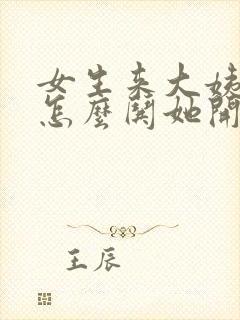 女生来大姨
怎麼鬨她開
王辰